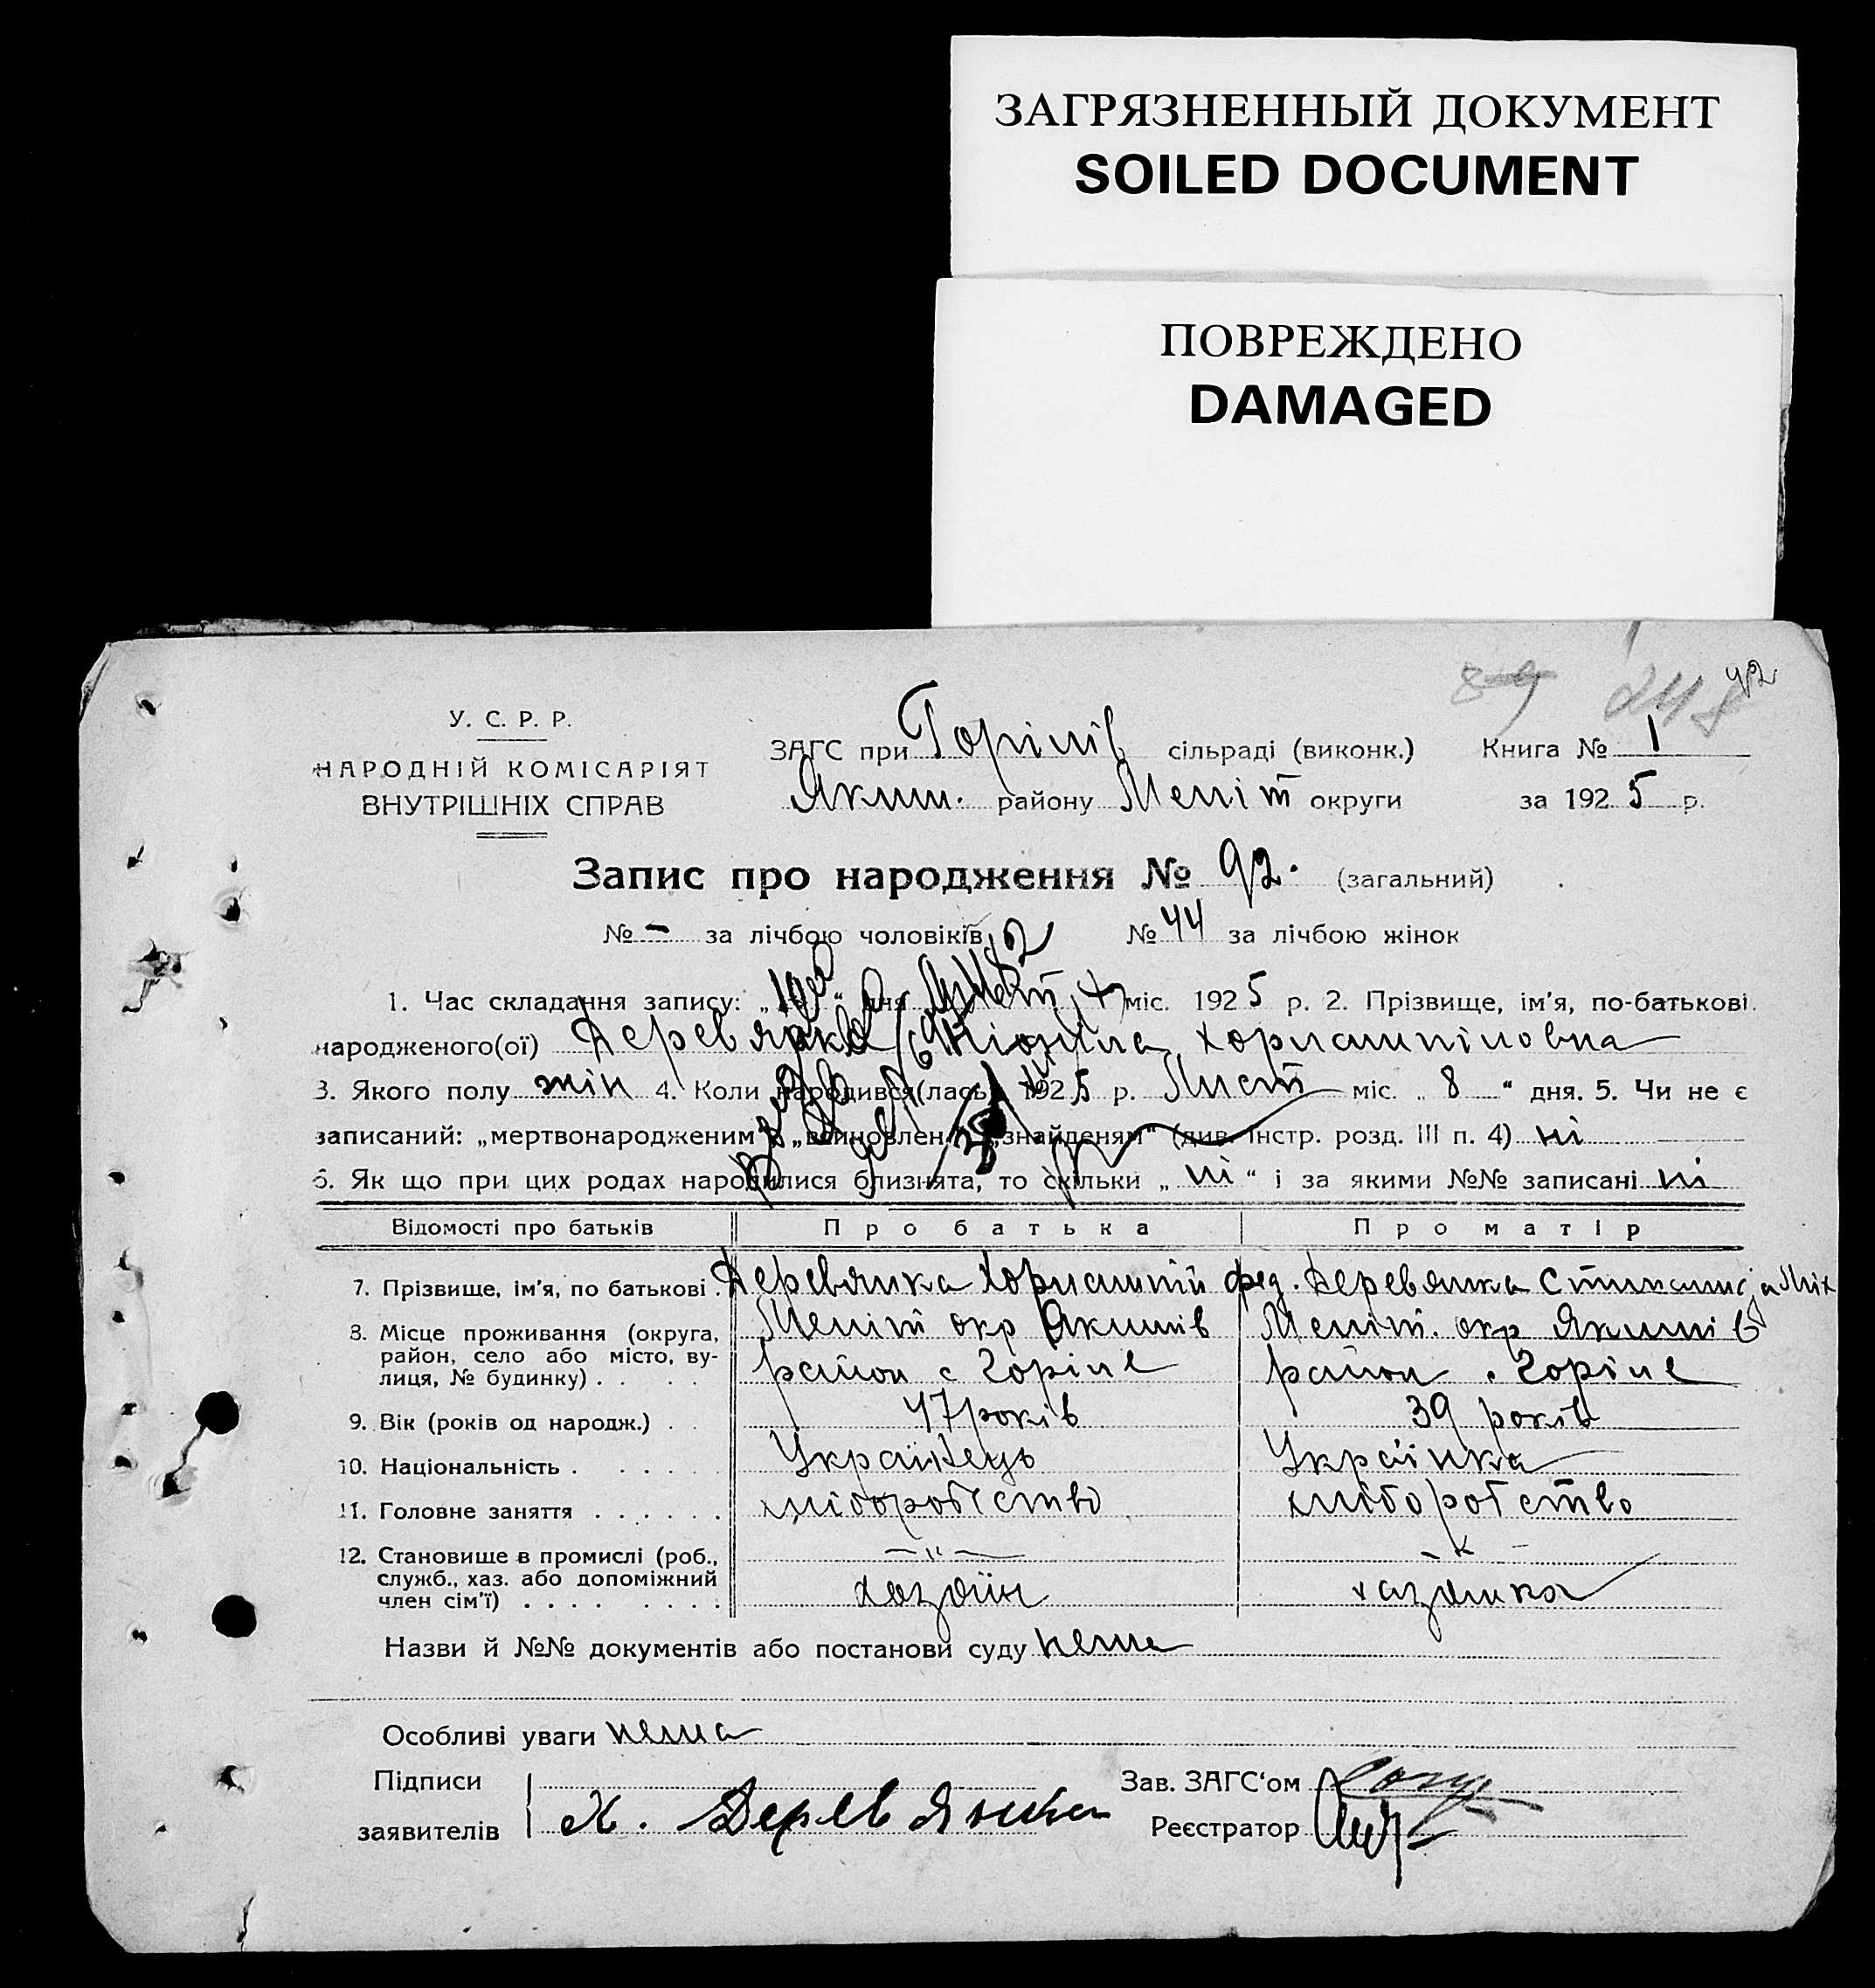 ЗАГРЯЗНЕННЫЙ ДОКУМЕНТ
SOILED DOCUMENT
ПОВРЕЖДЕНО
DAMAGED
89 248 92
У. С. Р. Р.
НАРОДНІЙ КОМІСАРІЯТ
ВНУТРІШНІХ СПРАВ
ЗАГС при Горілів сільраді (виконк.) Книга № 1
Яким. району Меліт округи за 1925 р.
Запис про народження № 92. (загальний)
№ – за лічбою чоловіків № 44 за лічбою жінок
1. Час складання запису: „ “ дня міс. 1925 р. 2. Прізвище, ім'я, по-батькові
народженого(ої) Деревянко Хорлампіловна
3. Якого полу жін 4. Коли народився(лась) 1925 р. Лист міс. „ 8 “ дня. 5. Чи не є
записаний: „мертвонародженим“, „знайденям“ (див. Інстр. розд. III п. 4) ні
6. Як що при цих родах народилися близнята, то скільки „ ні “ і за якими №№ записані ні
Відомості про батьків Про батька Про матір
7. Прізвище, ім'я, по батькові . Деревянка Хорлампій Фед. Деревянка Міх
8. Місце проживання (округа, Меліт окр Якимів Меліт. окр Якимів
район, село або місто, ву-
лиця, № будинку) . . . . район с Горіле район . Горіле
9. Вік (років од народж.) . . 47 років 39 років
10. Національність . . . . . . Українець Українка
11. Головне заняття . . . . . . хліборобство хліборобство
12. Становище в промислі (роб., — " — - " -
служб., хаз. або допоміжний
член сім'ї) . . . . . . . . хазяїн хазяйка
Назви й №№ документів або постанови суду нема
Особливі уваги нема
Підписи
заявителів Х. Деревянка
Зав. ЗАГС'ом
Реєстратор